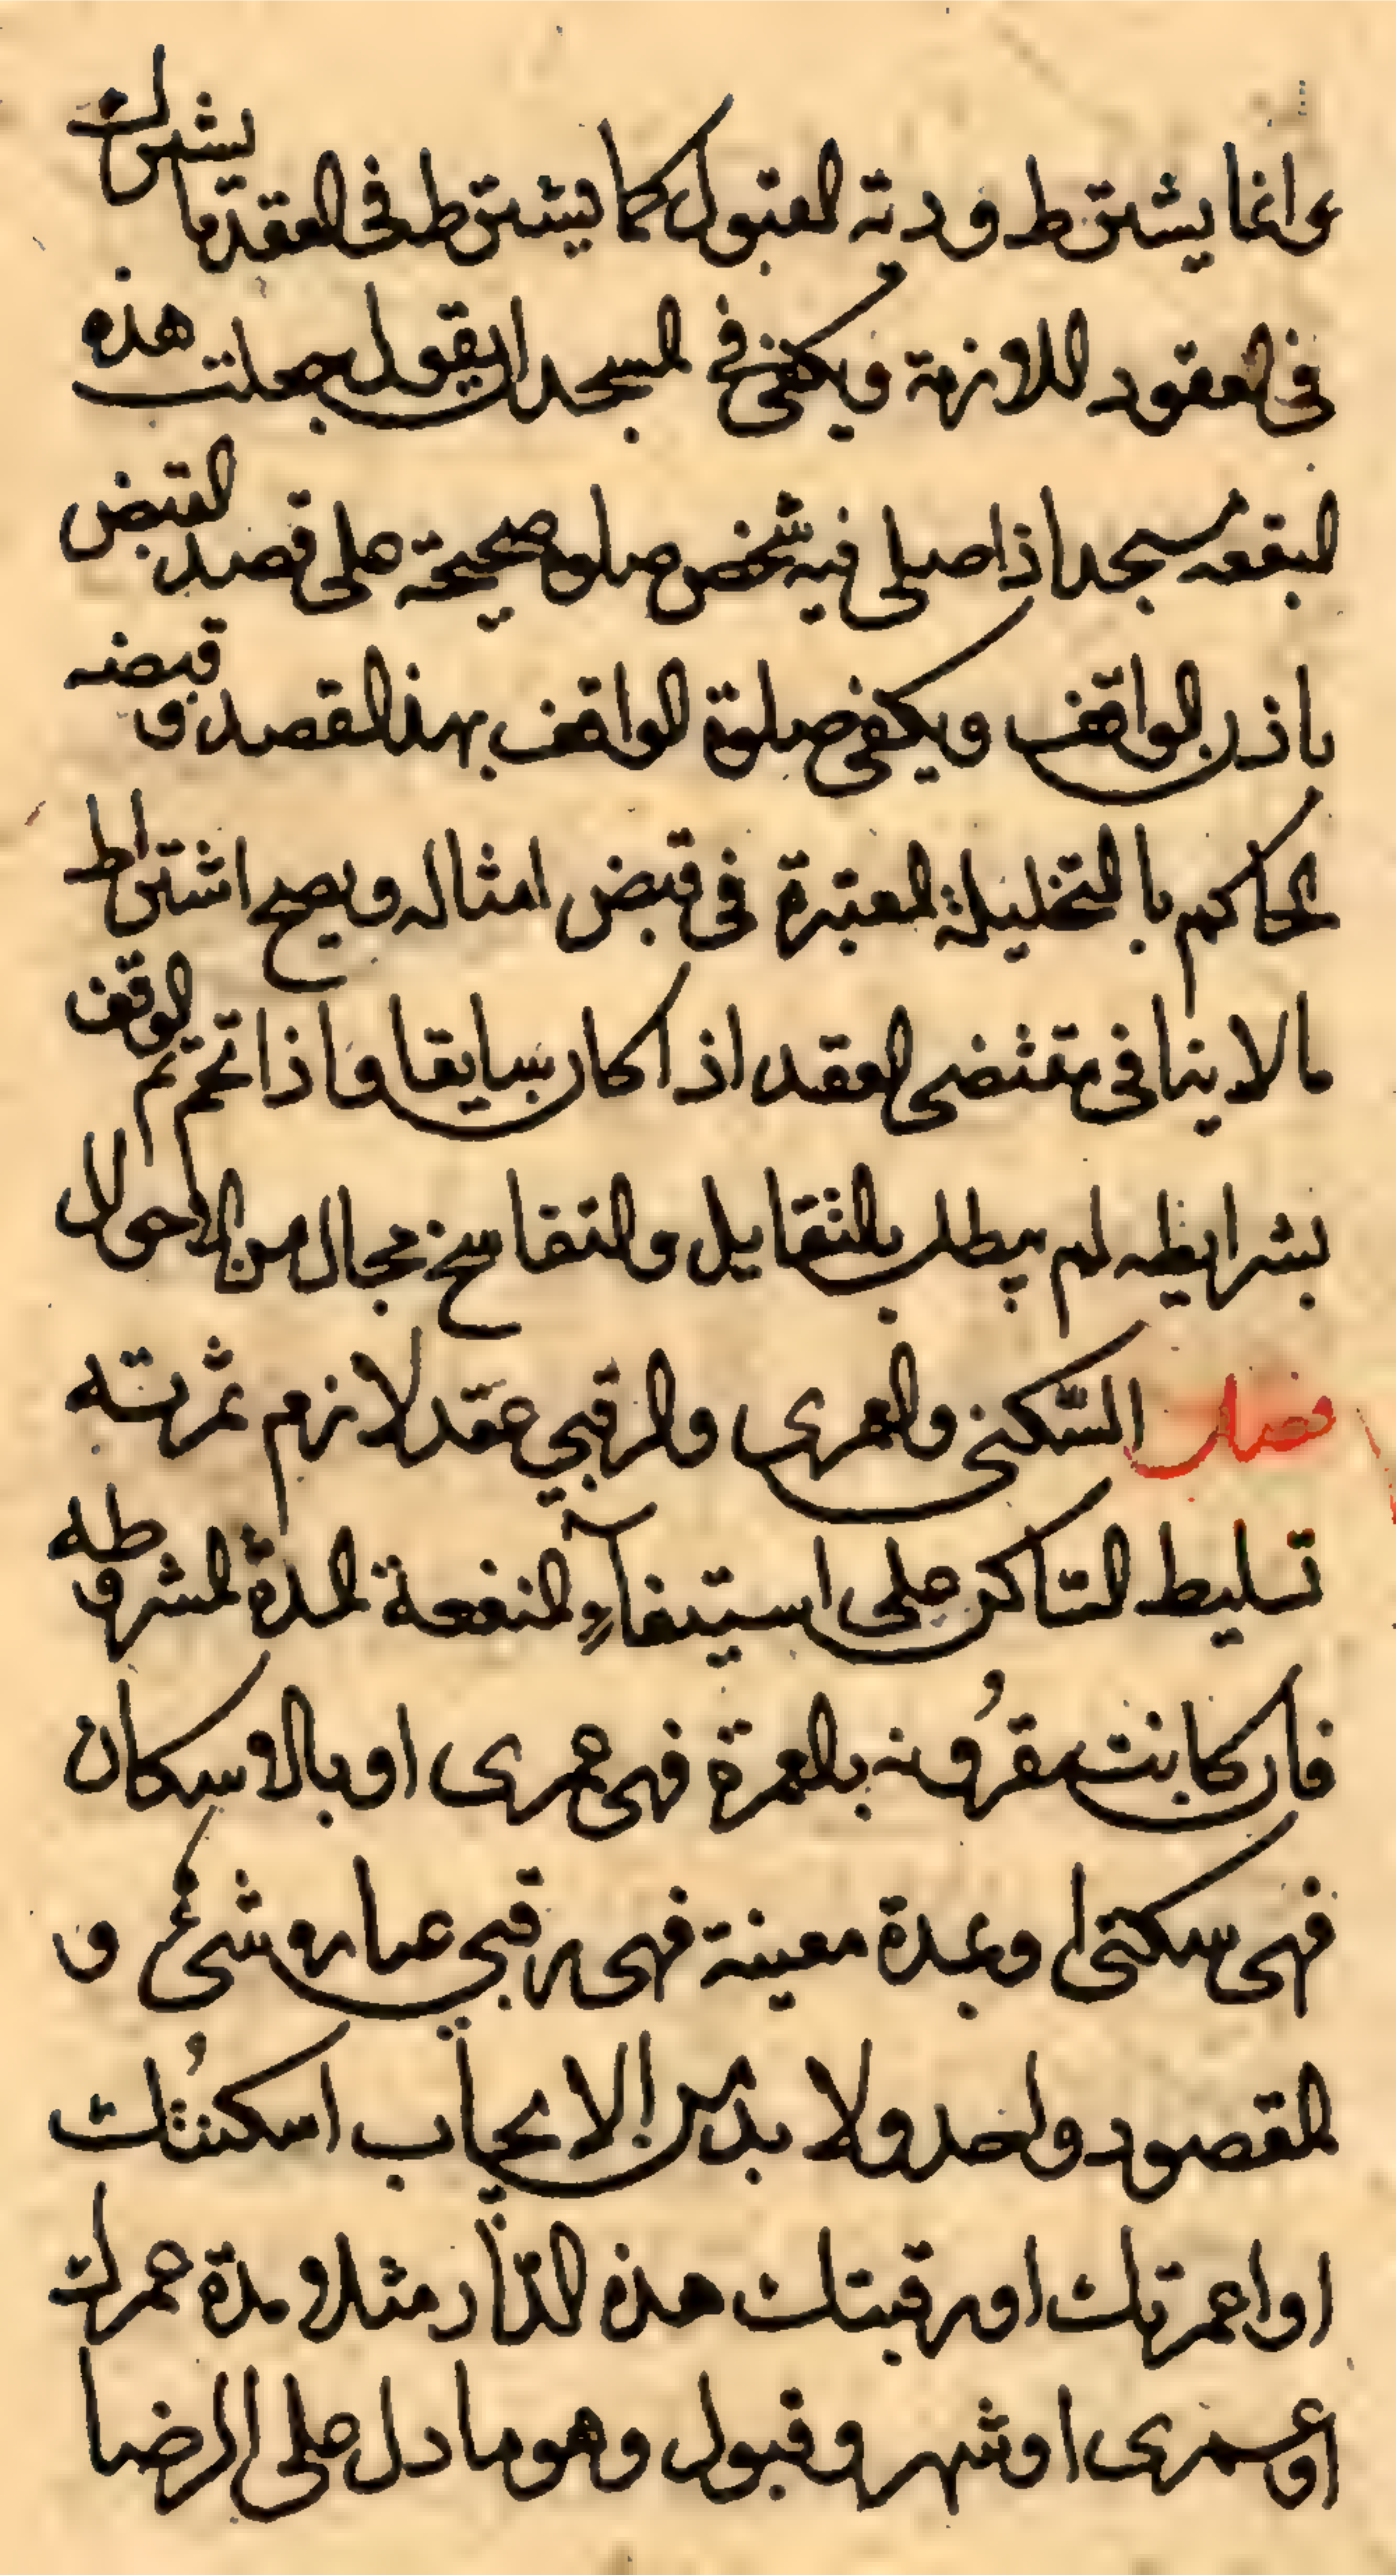 وانما يشترط فوريّة القبول كما يشترط فى العقد ما يشترك
فى العقود اللازمة ويكفى فى المسجد ان يقول جعلت هذه
البقعه مسجدا اذا صلى فيه شخص صلوة صحيحة على قصد القبض
باذن الواقف ويكفى صلوة الواقف بهذا القصد وقبضه
الحاكم با التخليلة المعتبرة فى قبض امثاله ويصح اشتراط
مالا ينافى مقتضى العقد اذا كان سايقا واذا تم الوقف
بشرايطه لم يبطل بالتقايل والتفاسخ بحال من الاحوال
فصل السّكنى والعمرى والرقبى عقد لازم ثمرته
تسليط السّاكن على استيفآءِ المنفعة المدة المشروطه
فان كانت مقرُونه بالعمرة فهى عمرى او بالاسكان
فهى سكنى او بمدة معينة فهى رقبى عبار وشىء و
المقصود واحد ولا بد من الايجاب اسكنتُك
او اعمرتك او رقبتك هذه الدّار مثلا و مدة عمرك
او عمرى او شهر و قبول وهو ما دل على الرضا